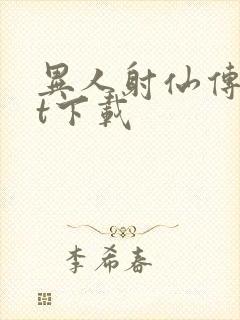 異人射仙傳
t下載
李希春